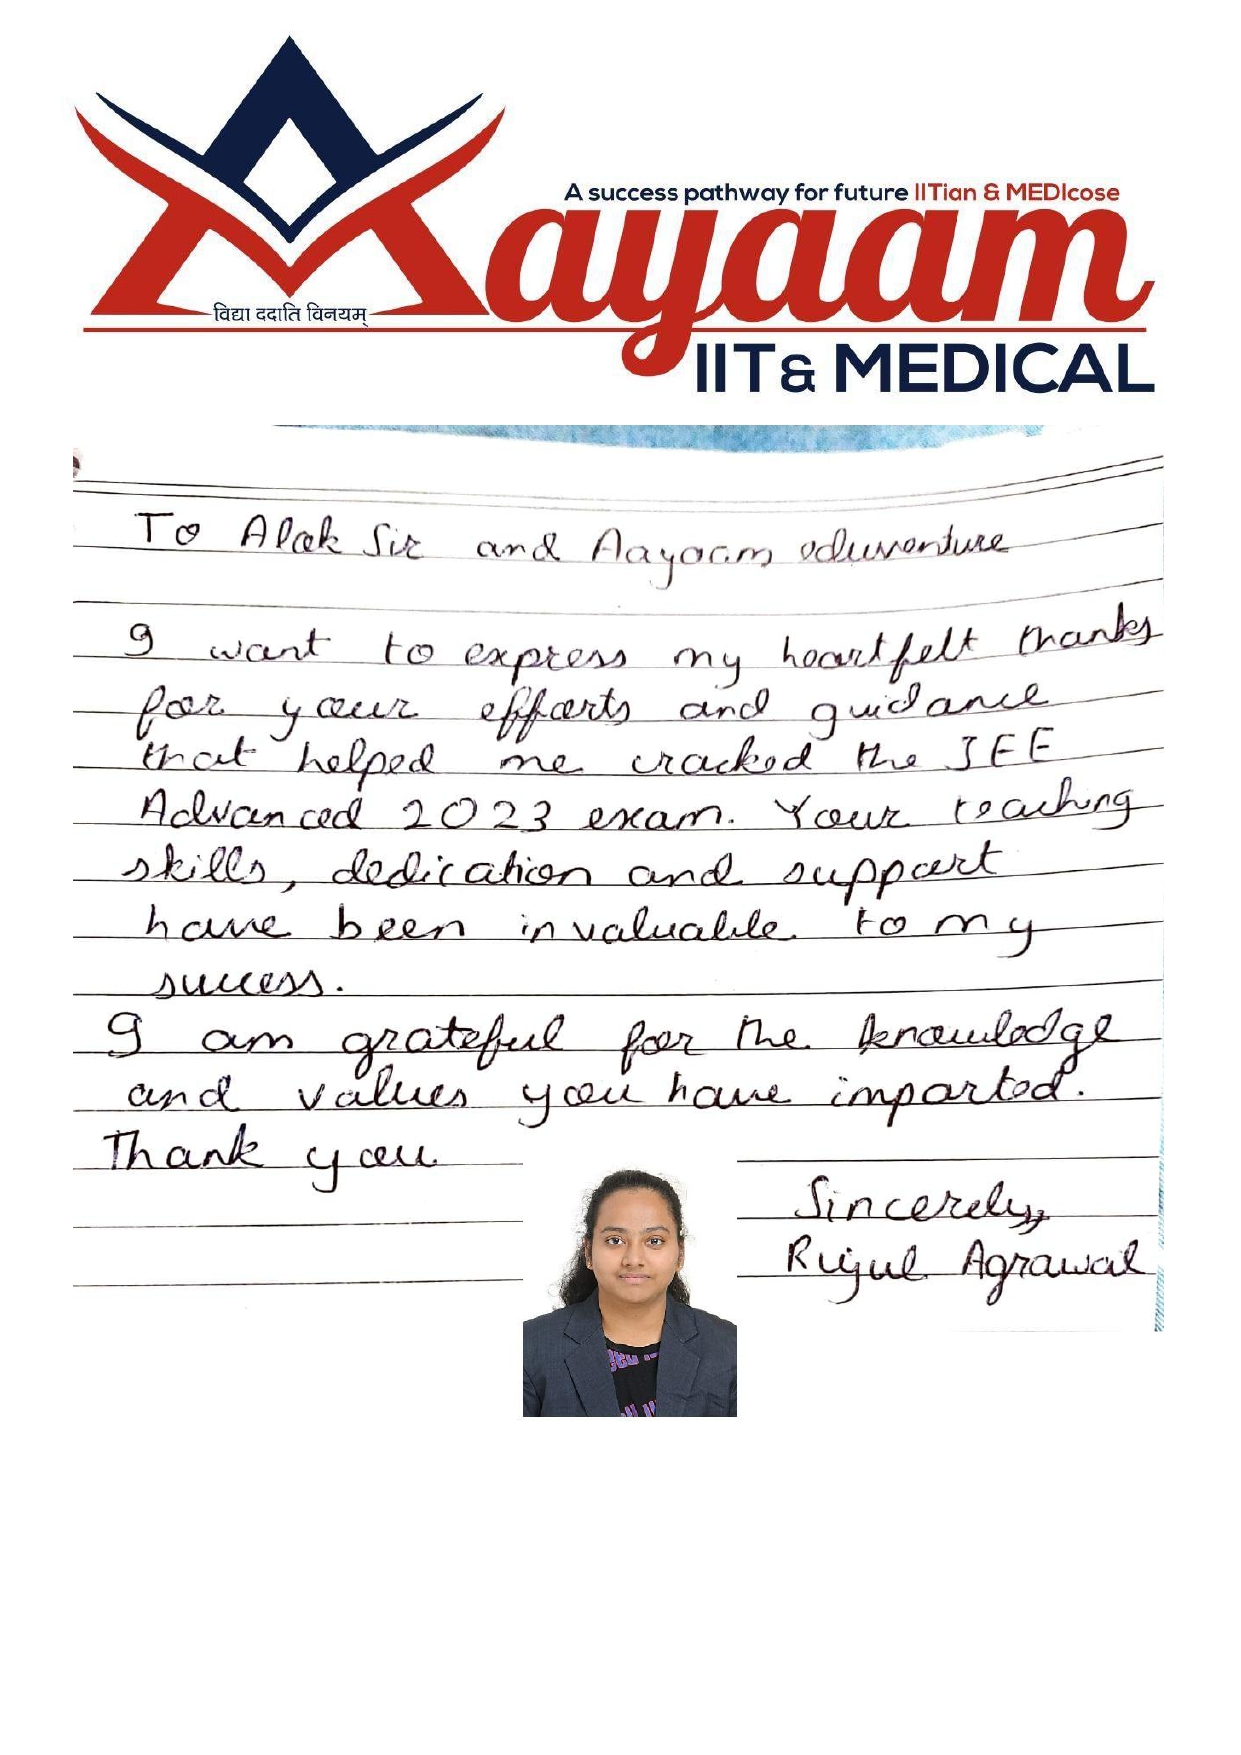 A success pathway for future IITian & MEDIcose
Aayaam
विद्या ददाति विनयम्
IIT & MEDICAL
To Alok Sir and Aayaam eduventure
I want to express my heartfelt thanks
for your efforts and guidance
that helped me cracked the JEE
Advanced 2023 exam. Your teaching
skills, dedication and support
have been invaluable to my
success.
I am grateful for the knowledge
and values you have imparted.
Thank you
Sincerely,
Rijul Agrawal